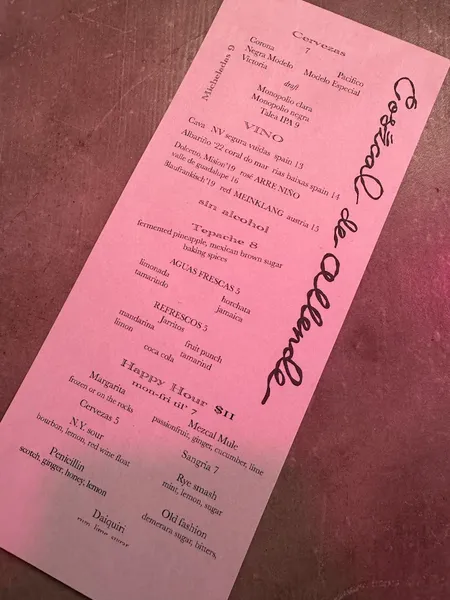 Cervezas
7
Corona
Negra Modelo
Victoria
Pacifico
Modelo Especial
Micheladas 9
draft
Monopolio clara
Monopolio negra
Talea IPA 9
VINO
Cava NV segura viudas spain 13
Albariño '22 coral do mar rias baixas spain 14
Dolcetto, Mision'19 rosé ARRE NIÑO
valle de guadalupe 16
Blaufrankisch'19 red MEINKLANG austria 15
sin alcohol
Tepache 8
fermented pineapple, mexican brown sugar
baking spices
AGUAS FRESCAS 5
limonada
tamarindo
horchata
jamaica
REFRESCOS 5
Jarritos
mandarina
limon
fruit punch
tamarind
coca cola
Happy Hour $11
mon-fri til' 7
Margarita
frozen or on the rocks
Mezcal Mule
passionfruit, ginger, cucumber, lime
Cervezas 5
Sangria 7
N.Y. sour
bourbon, lemon, red wine float
Rye smash
mint, lemon, sugar
Penicillin
scotch, ginger, honey, lemon
Old fashion
demerara sugar, bitters,
Daiquiri
rum, lime, sugar
de allende